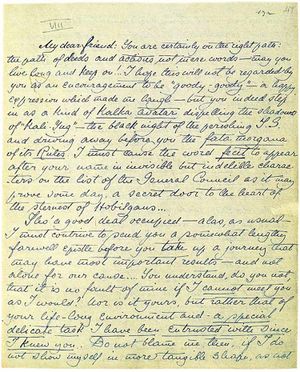 VIII
My dear friend: You are certainly on the right path:
the path of deeds and actions, not mere words — may you
live long and keep on!.. I hope this will not be regarded by
you as an encouragement to be "goody-goody" — a happy
expression which made me laugh — but you indeed step
in as a kind of Kalka avatar dispelling the shadows
of "Kali-Yug" — the black night of the perishing T.S.
and driving away before you the fata morgana
of its Rules. I must cause the word fecit to appear
after your name in invisible but indelible charac-
ters on the list of the General Council as it may
prove some day a secret door to the heart of
the sternest of Khobilgans...
Tho a good deal occupied — alas, as usual —
I must contrive to send you a somewhat lengthy
farewell epistle before you take up a journey that
may have most important results — and not
alone for our cause... You understand, do you not
that it is no fault of mine if I cannot meet you
as I would? Nor is it yours, but rather that of
your life-long environment and a special
delicate task I have been entrusted with since
I knew you. Do not blame me then, if I do
not show myself in more tangible shape, as not